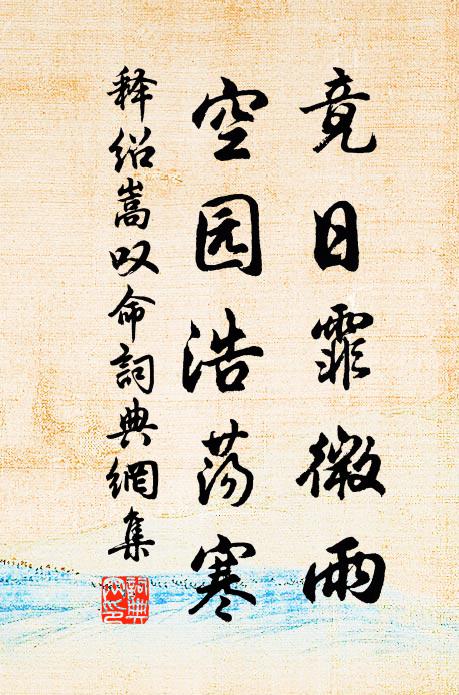 竟日霏微雨
空园浩荡寒
释绍嵩叹命詞典網集